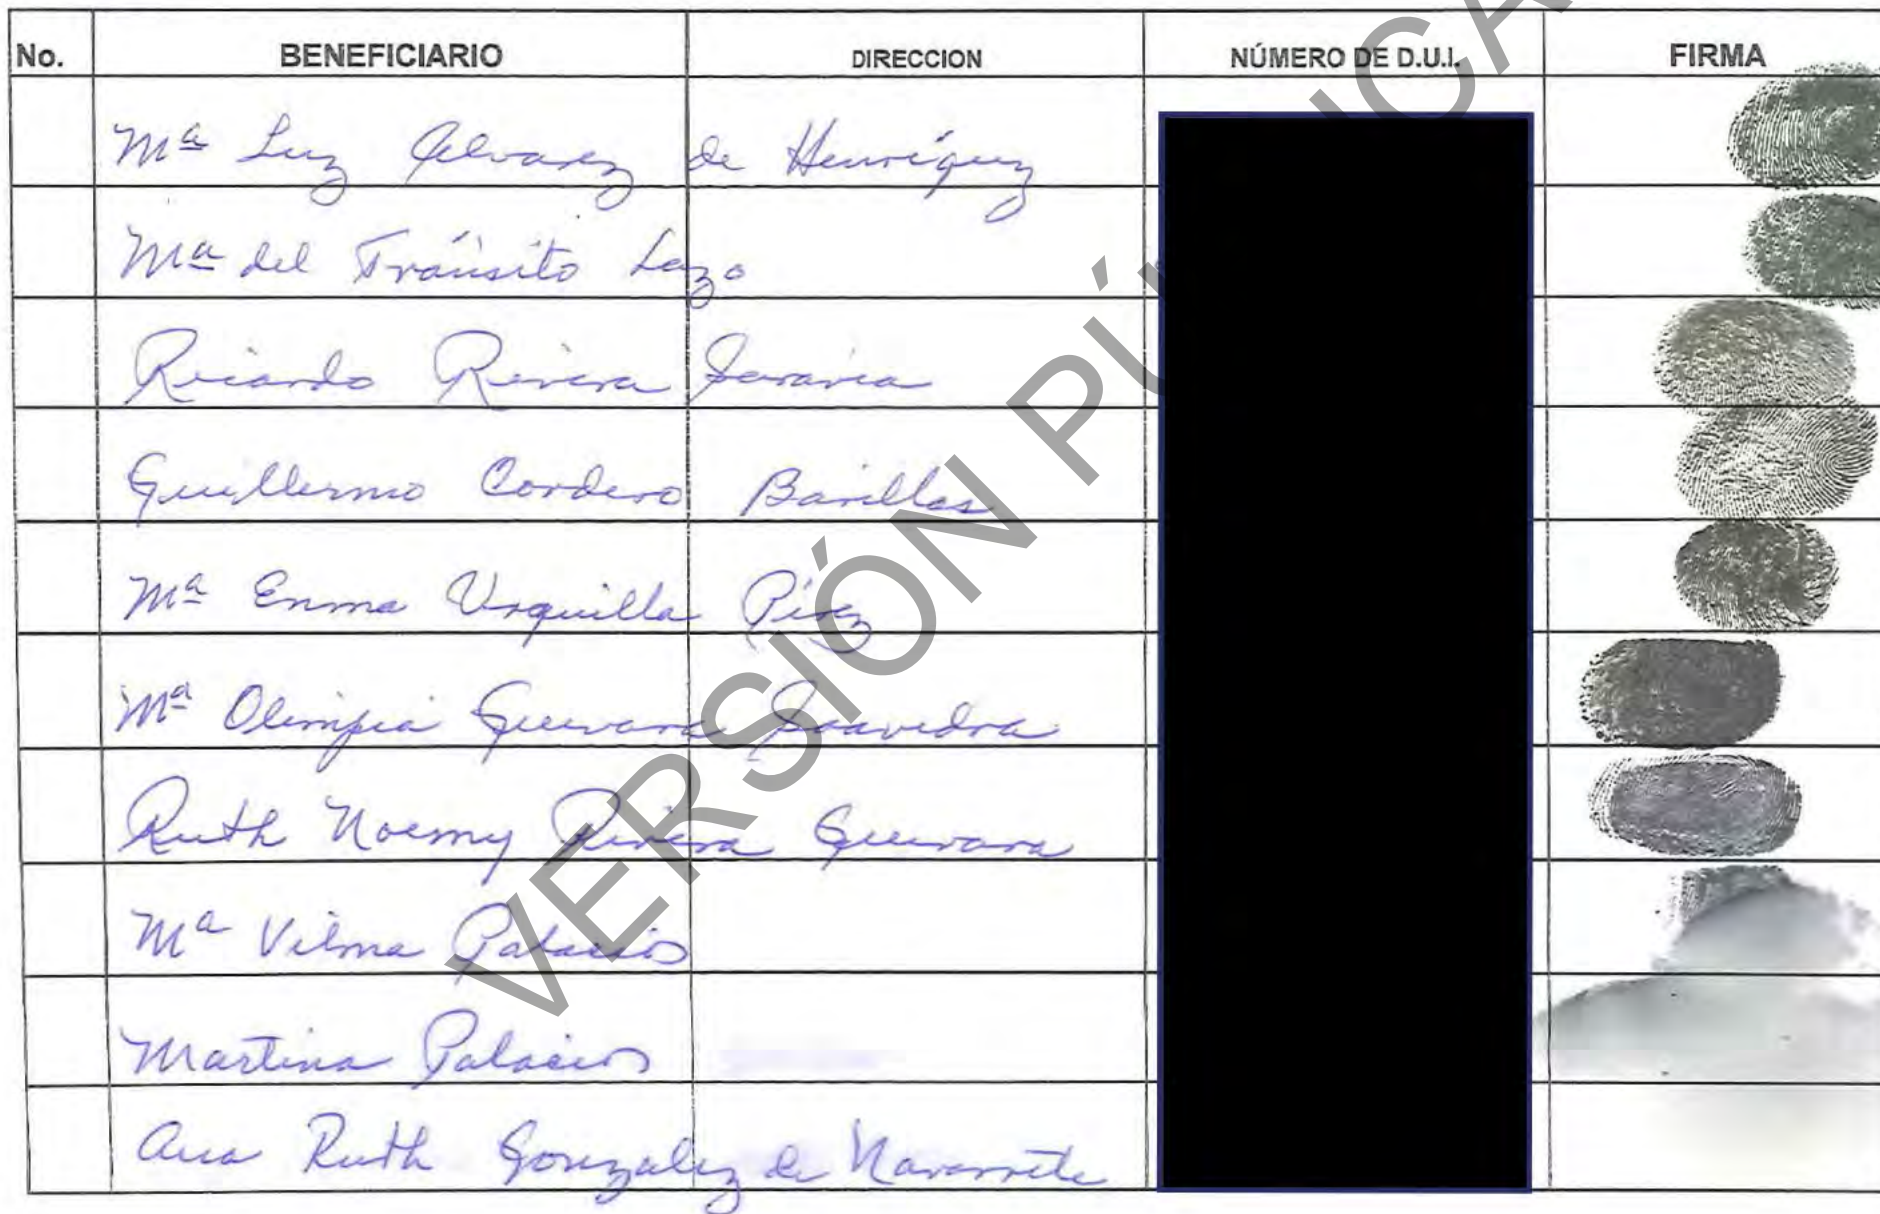 No. BENEFICIARIO DIRECCION NÚMERO DE D.U.I. FIRMA
Mª Luz Alvarez de Henríquez
Mª del Tránsito Lazo
Ricardo Rivera Saravia
Guillermo Cordero Barillas
Mª Enma Urquilla Pérez
Mª Olimpia Guevara Saavedra
Ruth Noemy Rivera Guevara
Mª Vilma Palacios
Martina Palacios
Ana Ruth Gonzalez de Navarrete
VERSIÓN PÚ ICA